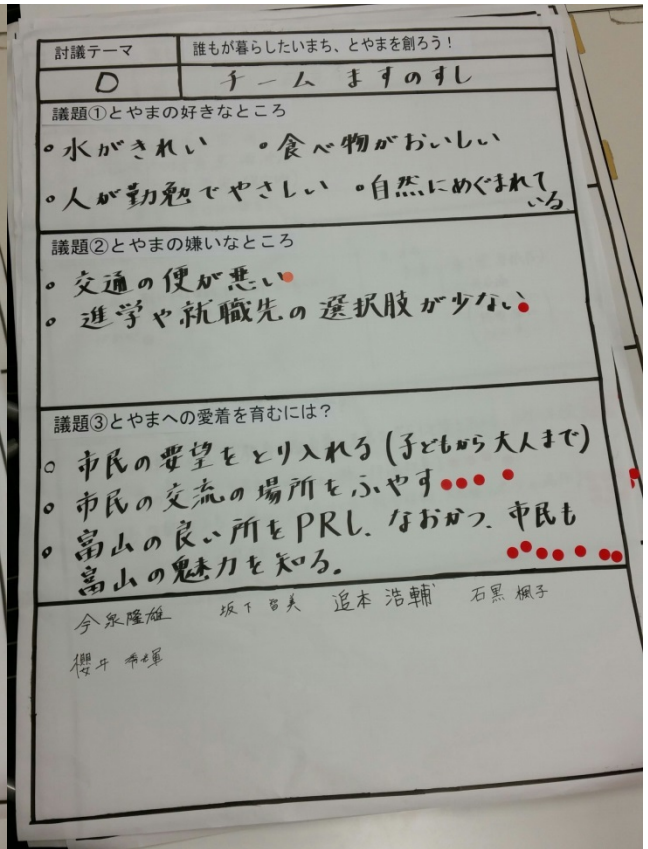 討議テーマ
誰もが暮らしたいまち、とやまを創ろう！
D
チーム ますのすし
議題①とやまの好きなところ
・水がきれい ・食べ物がおいしい
・人が勤勉でやさしい ・自然にめぐまれて
いる
議題②とやまの嫌いなところ
・交通の便が悪い
・進学や就職先の選択肢が少ない
議題③とやまへの愛着を育むには？
・市民の要望をとり入れる(子どもから大人まで)
・市民の交流の場所をふやす
・富山の良い所をPRし、なおかつ、市民も
富山の魅力を知る。
今泉隆雄 坂下 追本 浩輔 石黒 楓子
櫻井